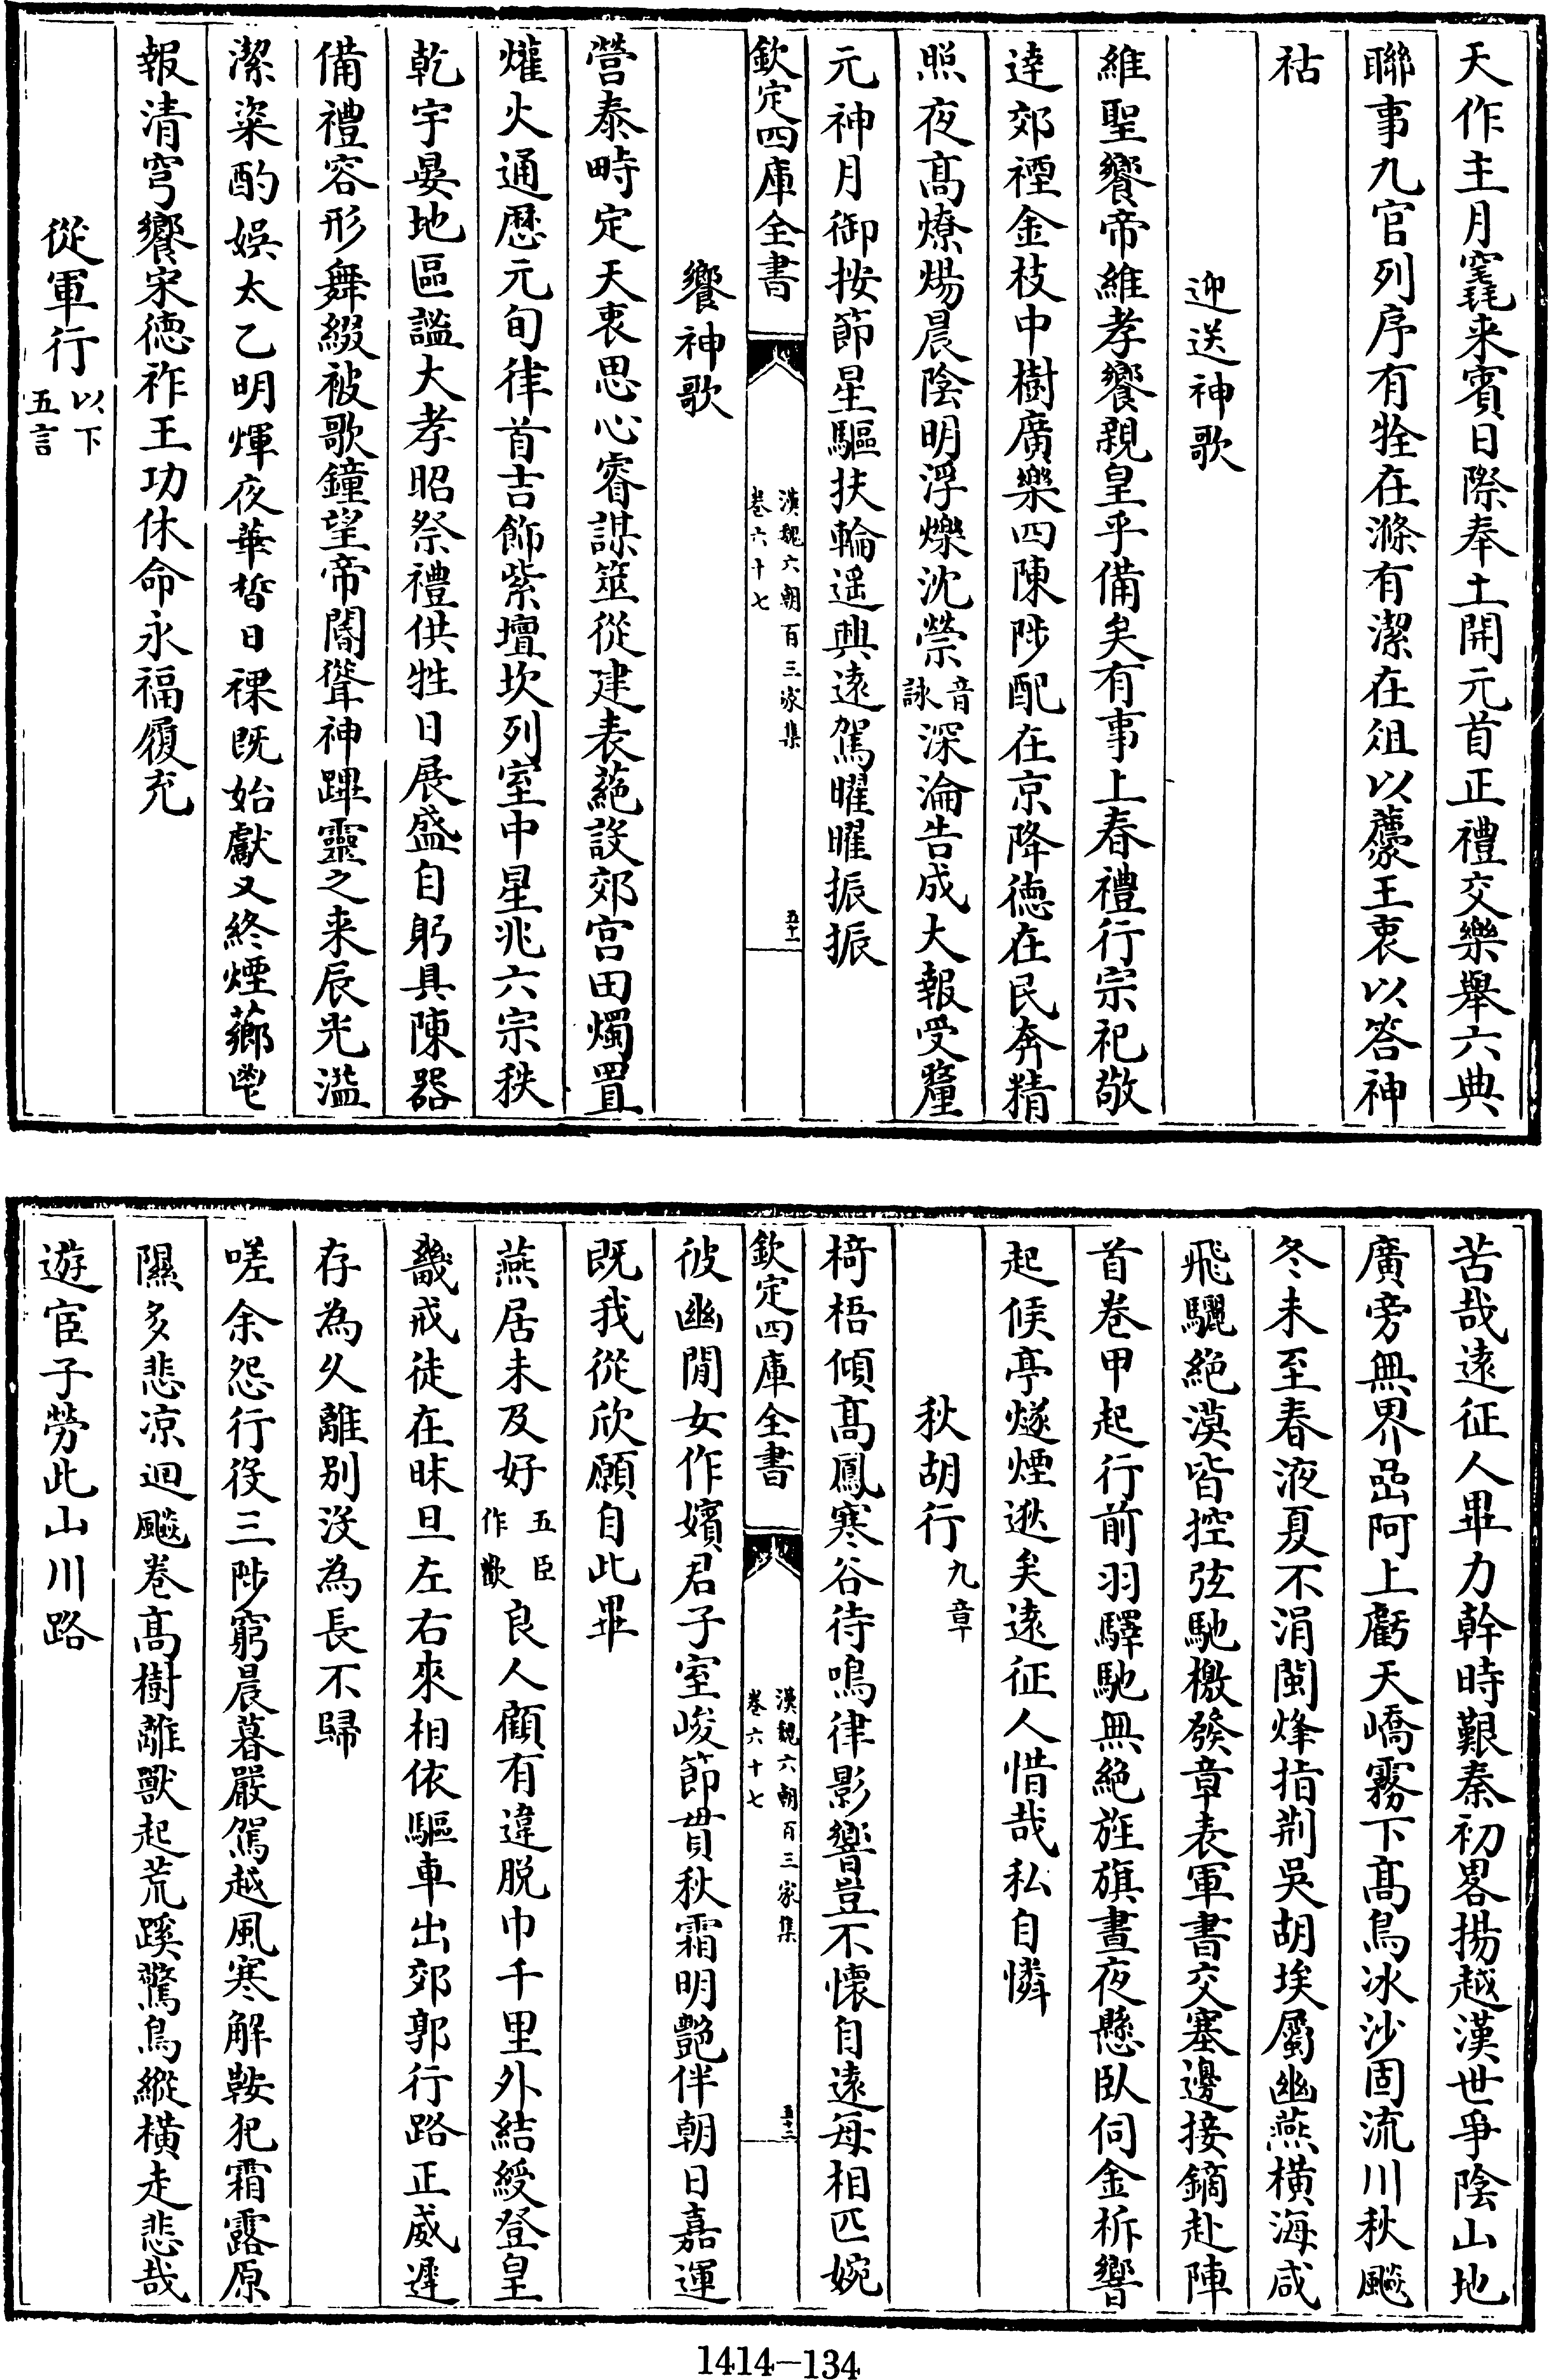 天作主月竁来賓日際奉土開元首正禮交樂舉六典
聯事九官列序有牷在滌有潔在俎以薦王衷以答神
祜
迎送神歌
維聖饗帝維孝饗親皇乎備矣有事上春禮行宗祀敬
達郊禋金枝中樹廣樂四陳陟配在京降徳在民奔精
照夜髙燎煬晨陰明浮爍沈禜音詠深淪告成大報受釐
元神月御按節星驅扶輪遥興逺駕曜曜振振
欽定四庫全書
漢魏六朝百三家集
卷六十七
五十一
饗神歌
營泰畤定天衷思心睿謀筮從建表蕝設郊宫田燭置
爟火通厯元旬律首吉飾紫壇坎列室中星兆六宗秩
乾宇晏地區謐大孝昭祭禮供牲日展盛自躬具陳器
備禮容形舞綴被歌鐘望帝閽聳神蹕靈之来辰光溢
潔粢酌娯太乙明煇夜華晳日祼既始獻又終煙薌鬯
報清穹饗宋徳祚王功休命永福履充
從軍行以下五言
苦哉逺征人畢力幹時艱秦初畧揚越漢世爭陰山地
廣旁無界嵒阿上虧天嶠霧下髙鳥冰沙固流川秋飈
冬未至春液夏不涓閩烽指荆吳胡埃屬幽燕横海咸
飛驪絶漠皆控弦馳檄發章表軍書交塞邊接鏑赴陣
首卷甲起行前羽驛馳無絶旌旗晝夜懸臥伺金柝響
起候亭燧煙逖矣逺征人惜哉私自憐
秋胡行九章
椅梧傾髙鳳寒谷待鳴律影響豈不懐自逺每相匹婉
欽定四庫全書
漢魏六朝百三家集
卷六十七
五十二
彼幽閒女作嬪君子室峻節貫秋霜明艷伴朝日嘉運
既我從欣願自此畢
燕居未及好五臣作歡良人顧有違脱巾千里外結綬登皇
畿戒徒在昧旦左右來相依驅車出郊郭行路正威遲
存為久離别沒為長不歸
嗟余怨行役三陟窮晨暮嚴駕越風寒解鞍犯霜露原
隰多悲凉迴飈卷髙樹離獸起荒蹊驚鳥縱横走悲哉
遊宦子勞此山川路
1414—134